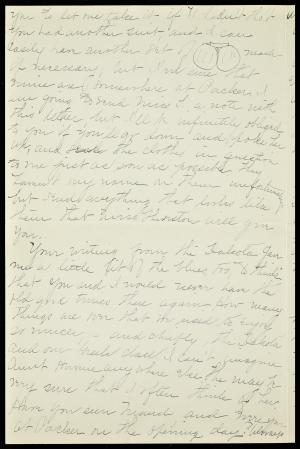 you to let me take it if I hadn't that
you had another suit and I can
easily have another pair of made
if necessary, but I'm sure that
mine are somewhere at Packer. I
am going to send Miss L. a note with
this letter but I'll be infinitely obliged
to you if you'll go down and, poke her
up, and send the clothes in question
to me first as soon as possible. They
haven't my name in them unfortunately
but send everything that looks like
them that Miss Thurston will give
you.
Your writing from the Dakota gave
me a little fit of the blues too, to think
that you and I would never have the
old good times there again. How many
things are over that we used to enjoy
so much, - and chiefly, the Dakota
and our Greek class. I can't imagine
Aunt Fannie anywhere else. She may be
very sure that I often think of her.
Have you seen and
at Packer on the opening day?